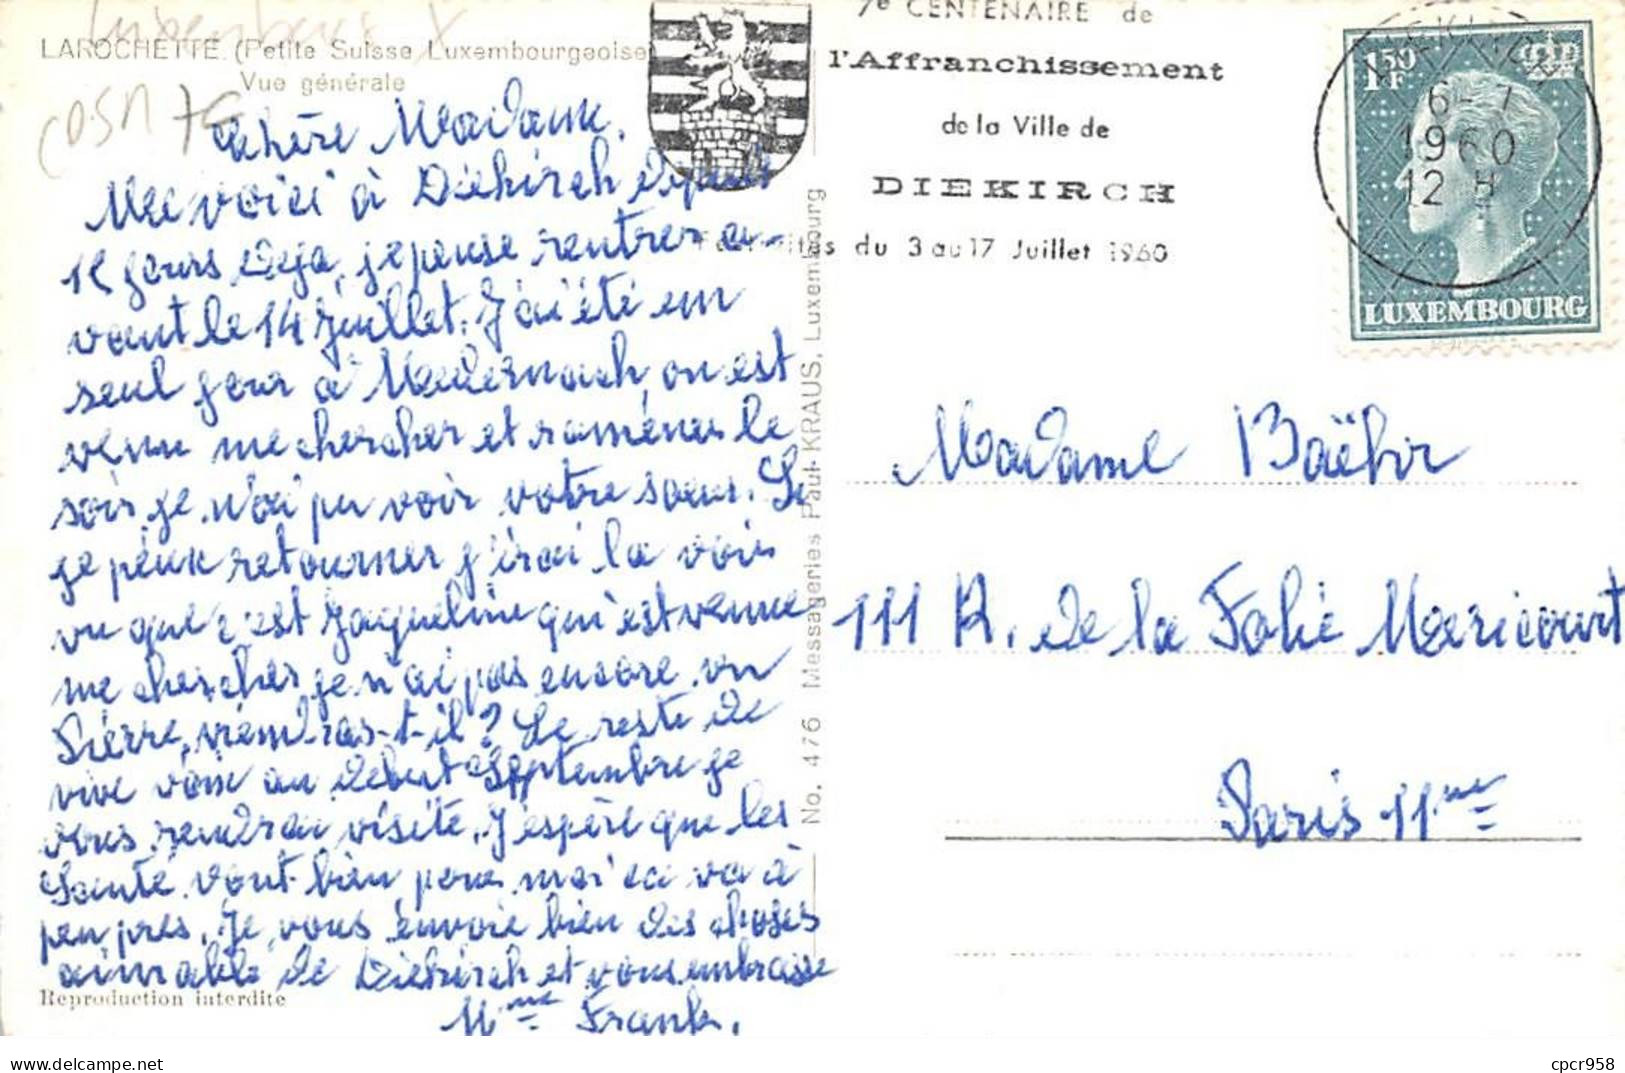 LAROCHETTE. (Petite Suisse Luxembourgeoise)
Vue générale
Chère Madame,
Me voici à Diekirch depuis
15 jours deja, je pense rentrer a-
vant le 14 Juillet. J'ai été un
seul jour à Medernach, on est
venu me chercher et ramener le
soir, je n'ai pu voir votre sœur. Si
je peux retourner j'irai la voir
vu que c'est Jaqueline qui est venue
me chercher je n'ai pas encore vu
Pierre, viendras-t-il? Le reste de
vive voix au debut Septembre je
vous rendrai visite. J'espère que les
Santé vont bien pour moi ca va à
peu pres. Je vous envoie bien des choses
aimable de Diekirch et vous embrasse
Mme Frank.
Reproduction interdite
No. 476 Messageries Paul KRAUS, Luxembourg
7e CENTENAIRE de
l'Affranchissement
de la Ville de
DIEKIRCH
Festivités du 3 au 17 Juillet 1960
1F50
LUXEMBOURG
6-7
1960
12 H
Madame Baëhr
111 R. de la Folie Mericourt
Paris 11me
cpcr958